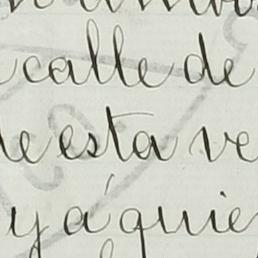 calle de
de esta ve
y á quie